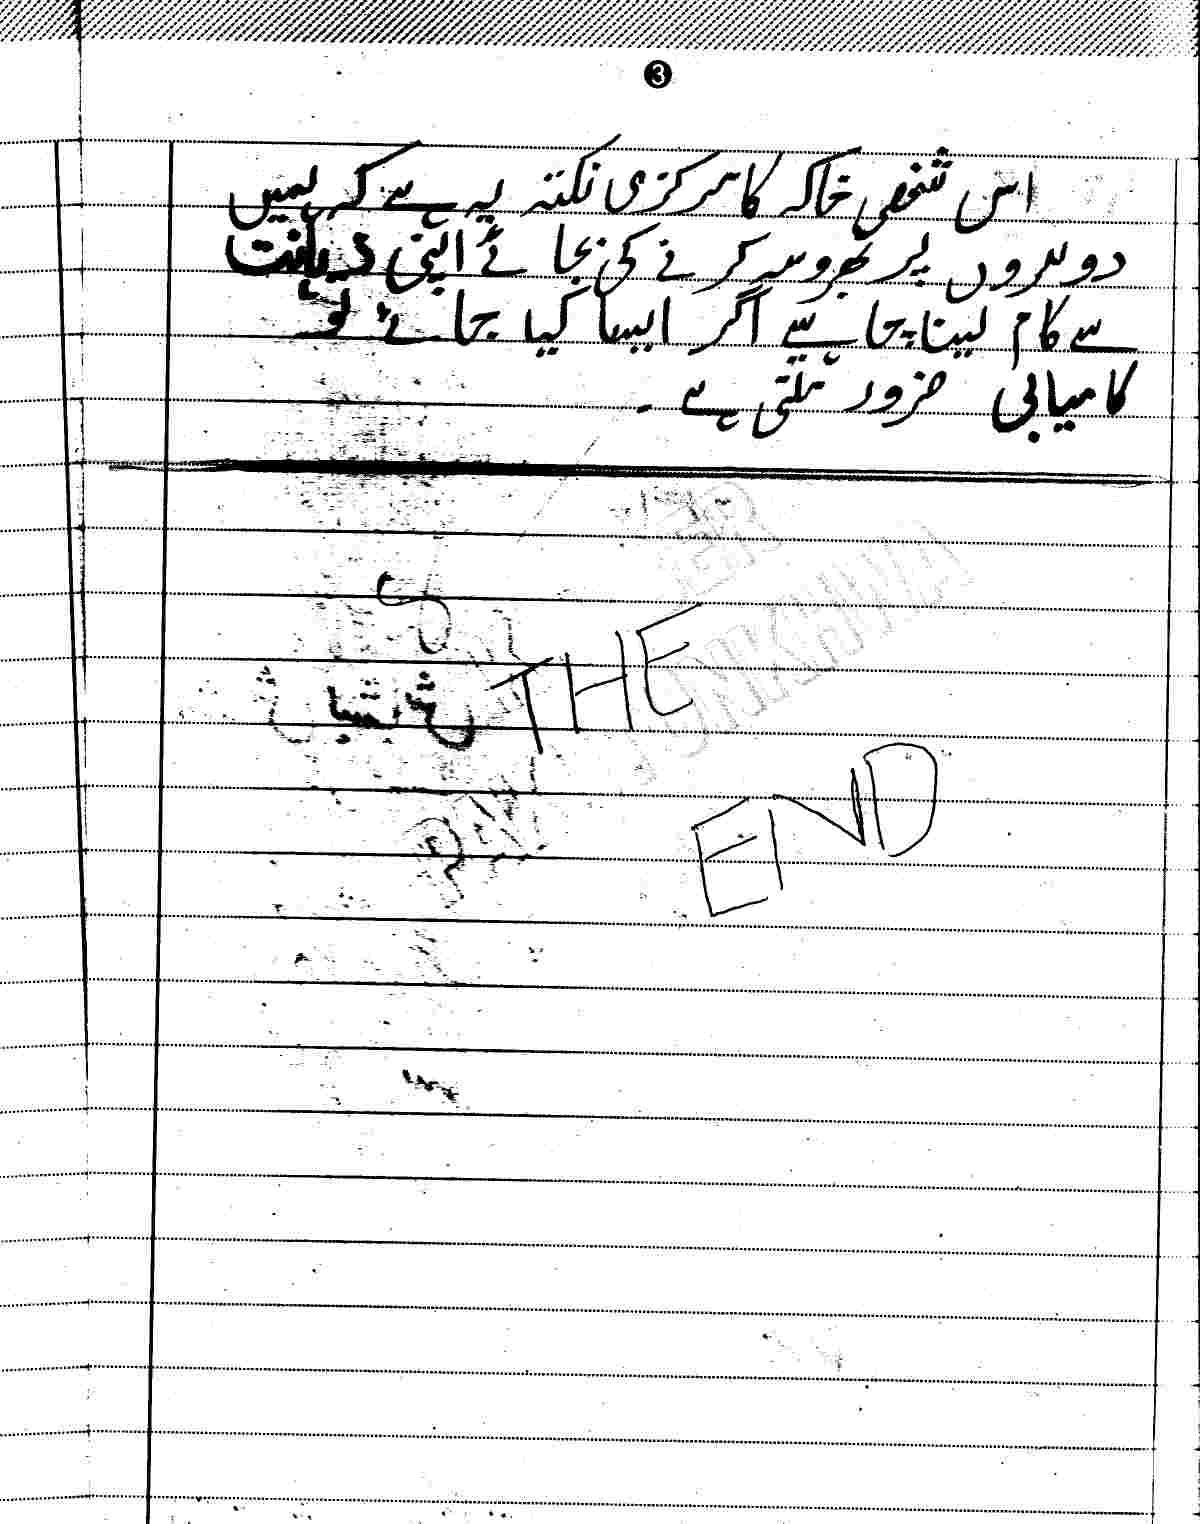 3
اس شخصی خاکہ کا مرکزی نکتہ یہ ہے کہ ہمیں
دوسروں پر بھروسہ کرنے کی بجائے اپنی ذہانت
سے کام لینا چاہیے اگر ایسا کیا جائے تو
کامیابی ضرور ملتی ہے ۔
THE
END